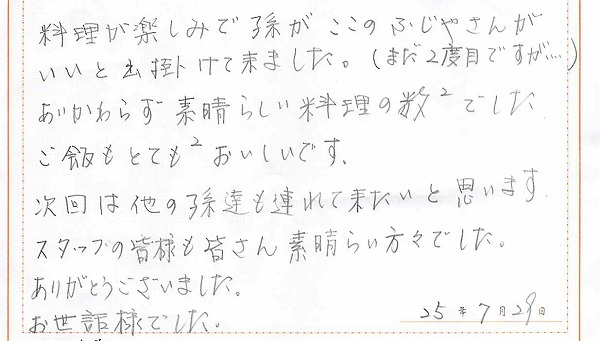 料理が楽しみで孫がここのふじやさんが
いいと出掛けて来ました。(まだ2度目ですが…)
あいかわらず素晴らしい料理の数²でした
ご飯もとても²おいしいです。
次回は他の孫達も連れて来たいと思います.
スタッフの皆様も皆さん素晴らい方々でした。
ありがとうございました。
お世話様でした。
25年7月29日